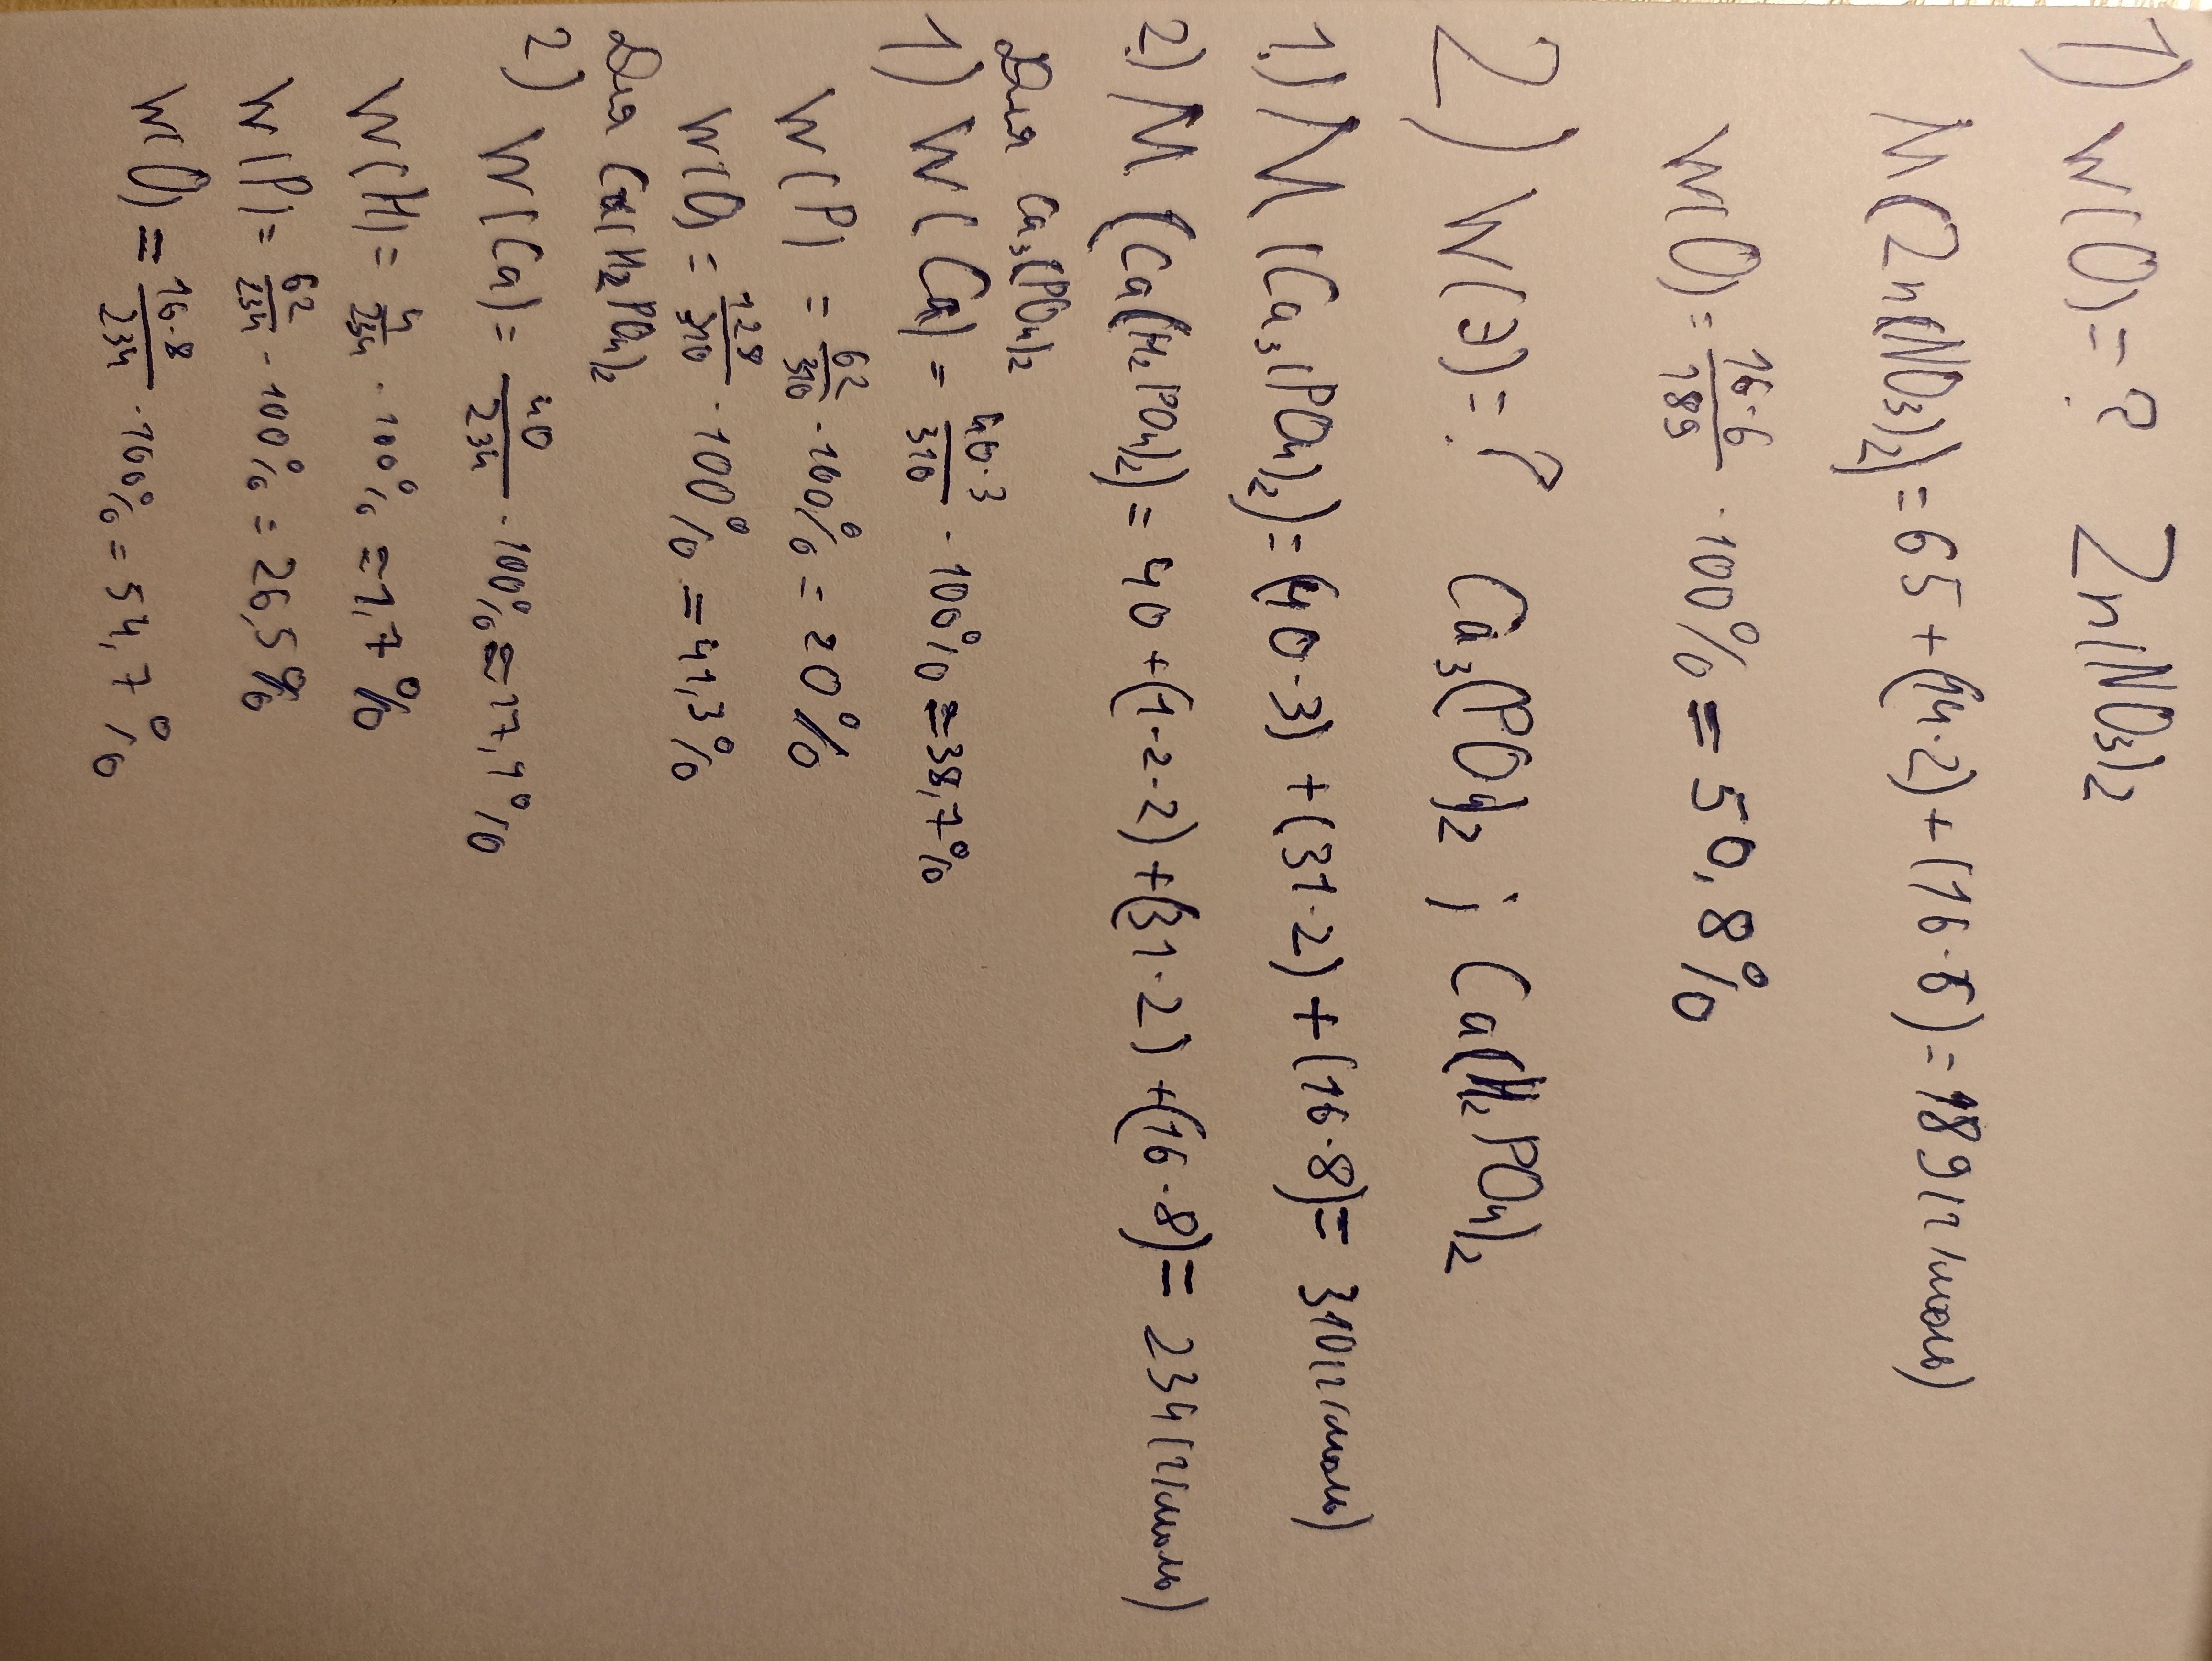 1) W(O)=? Zn(NO3)2
M(Zn(NO3)2)=65+(14·2)+(16·6)=189(г/моль)
W(O)=16·6/189·100%=50,8%
2) W(Э)=? Ca3(PO4)2; Ca(H2PO4)2
1.) M(Ca3(PO4)2)=(40·3)+(31·2)+(16·8)=310(г/моль)
2.) M(Ca(H2PO4)2)=40+(1·2·2)+(31·2)+(16·8)=234(г/моль)
Для Ca3(PO4)2
1) W(Ca)=40·3/310·100%=38,7%
W(P)=62/310·100%=20%
W(O)=128/310·100%=41,3%
Для Ca(H2PO4)2
2) W(Ca)=40/234·100%=17,1%
W(H)=4/234·100%=1,7%
W(P)=62/234·100%=26,5%
W(O)=16·8/234·100%=54,7%